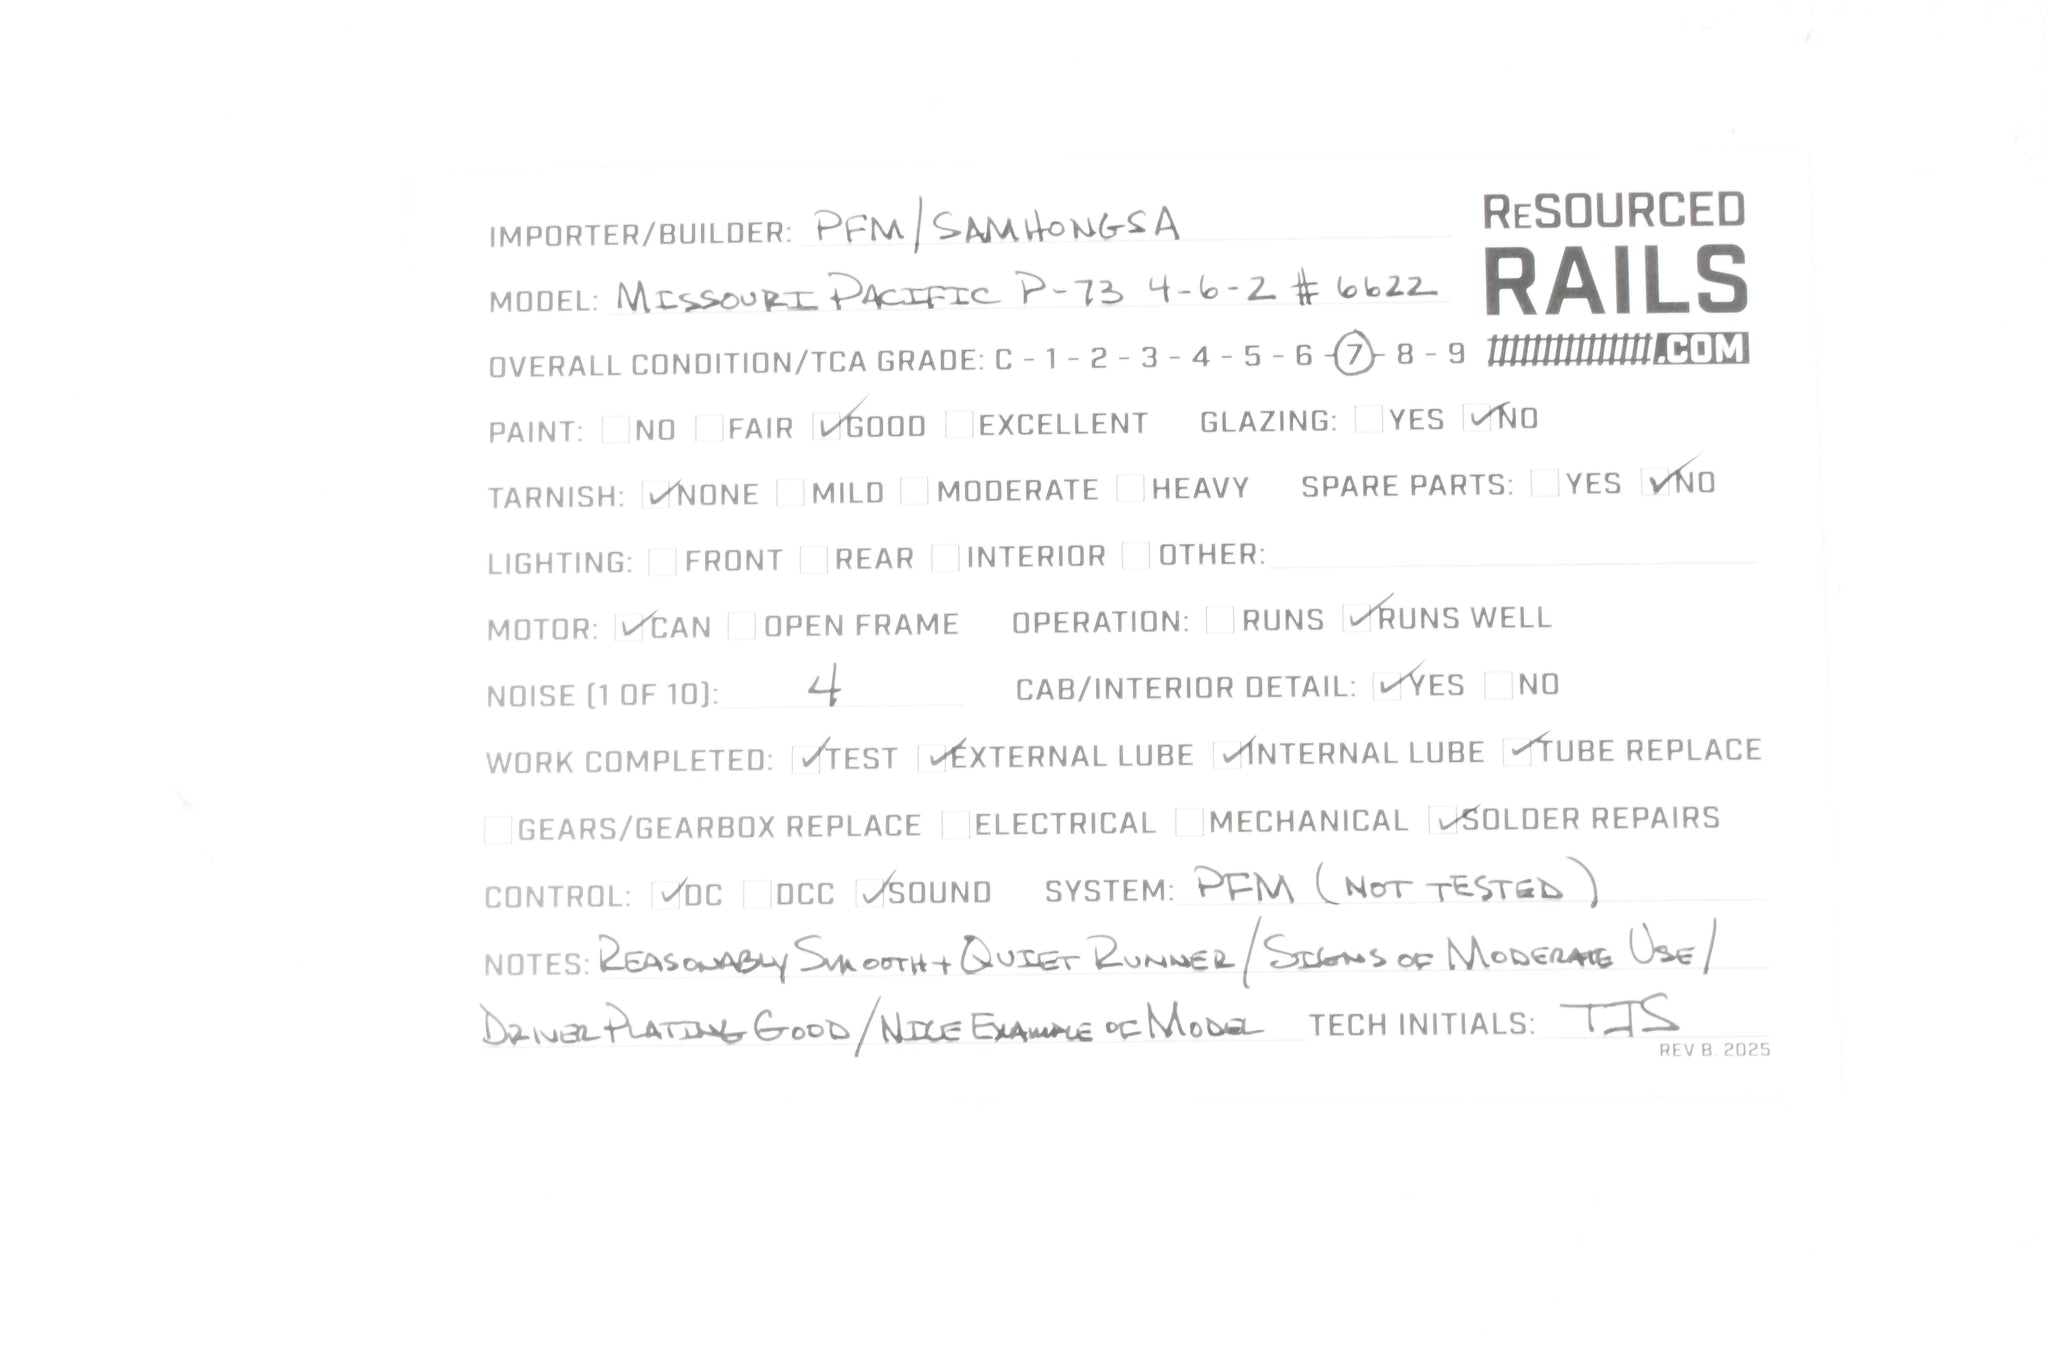 IMPORTER/BUILDER: PFM/SAMHONGSA
RESOURCED
RAILS
.COM
MODEL: MISSOURI PACIFIC P-73 4-6-2 # 6622
OVERALL CONDITION/TCA GRADE: C - 1 - 2 - 3 - 4 - 5 - 6 - 7 - 8 - 9
PAINT: NO FAIR GOOD EXCELLENT GLAZING: YES NO
TARNISH: NONE MILD MODERATE HEAVY SPARE PARTS: YES NO
LIGHTING: FRONT REAR INTERIOR OTHER:
MOTOR: CAN OPEN FRAME OPERATION: RUNS RUNS WELL
NOISE (1 OF 10): 4 CAB/INTERIOR DETAIL: YES NO
WORK COMPLETED: TEST EXTERNAL LUBE INTERNAL LUBE TUBE REPLACE
GEARS/GEARBOX REPLACE ELECTRICAL MECHANICAL SOLDER REPAIRS
CONTROL: DC DCC SOUND SYSTEM: PFM (NOT TESTED)
NOTES: REASONABLY SMOOTH + QUIET RUNNER/SIGNS OF MODERATE USE/
DRIVER PLATING GOOD/NICE EXAMPLE OF MODEL TECH INITIALS: TJS
REV B. 2025